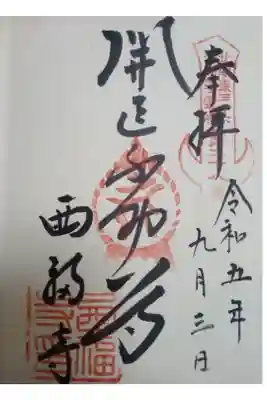 奉拝
令和五年
九月三日
開運不動尊
西福寺